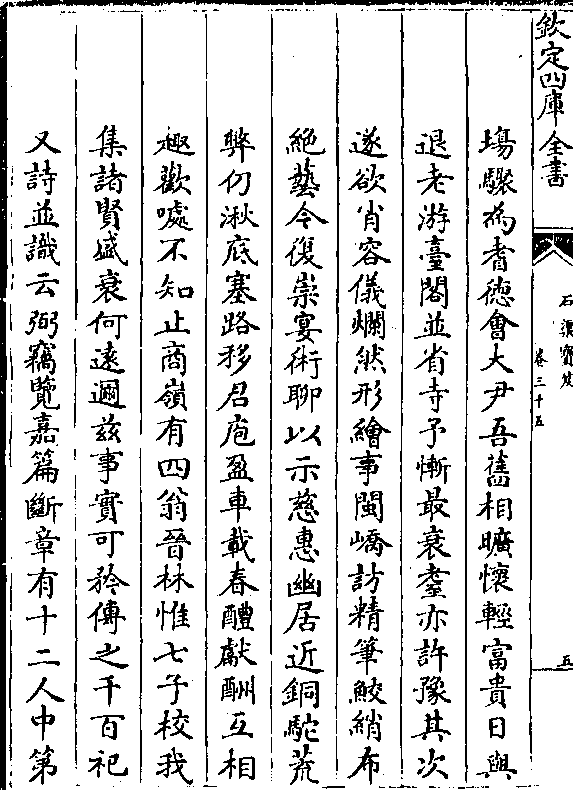 欽定四庫全書
石渠寶笈
卷三十五
五
塲驟為耆徳會大尹吾舊相曠懷輕富貴日與
退老游臺閣並省寺予慚最衰耄亦許豫其次
遂欲肖容儀爛然形繪事閩嶠訪精筆鮫綃布
絶藝令復崇宴術聊以示慈惠幽居近銅駝荒
弊仍湫底塞路移君庖盈車載春醴獻酬互相
趣歡噱不知止商嶺有四翁晉林惟七子校我
集諸賢盛衰何遠邇兹事實可矜傳之千百祀
又詩並識云弼竊覽嘉篇斷章有十二人中第